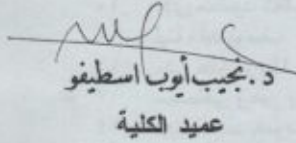 د. نجيب أيوب اسطيفو
عميد الكلية